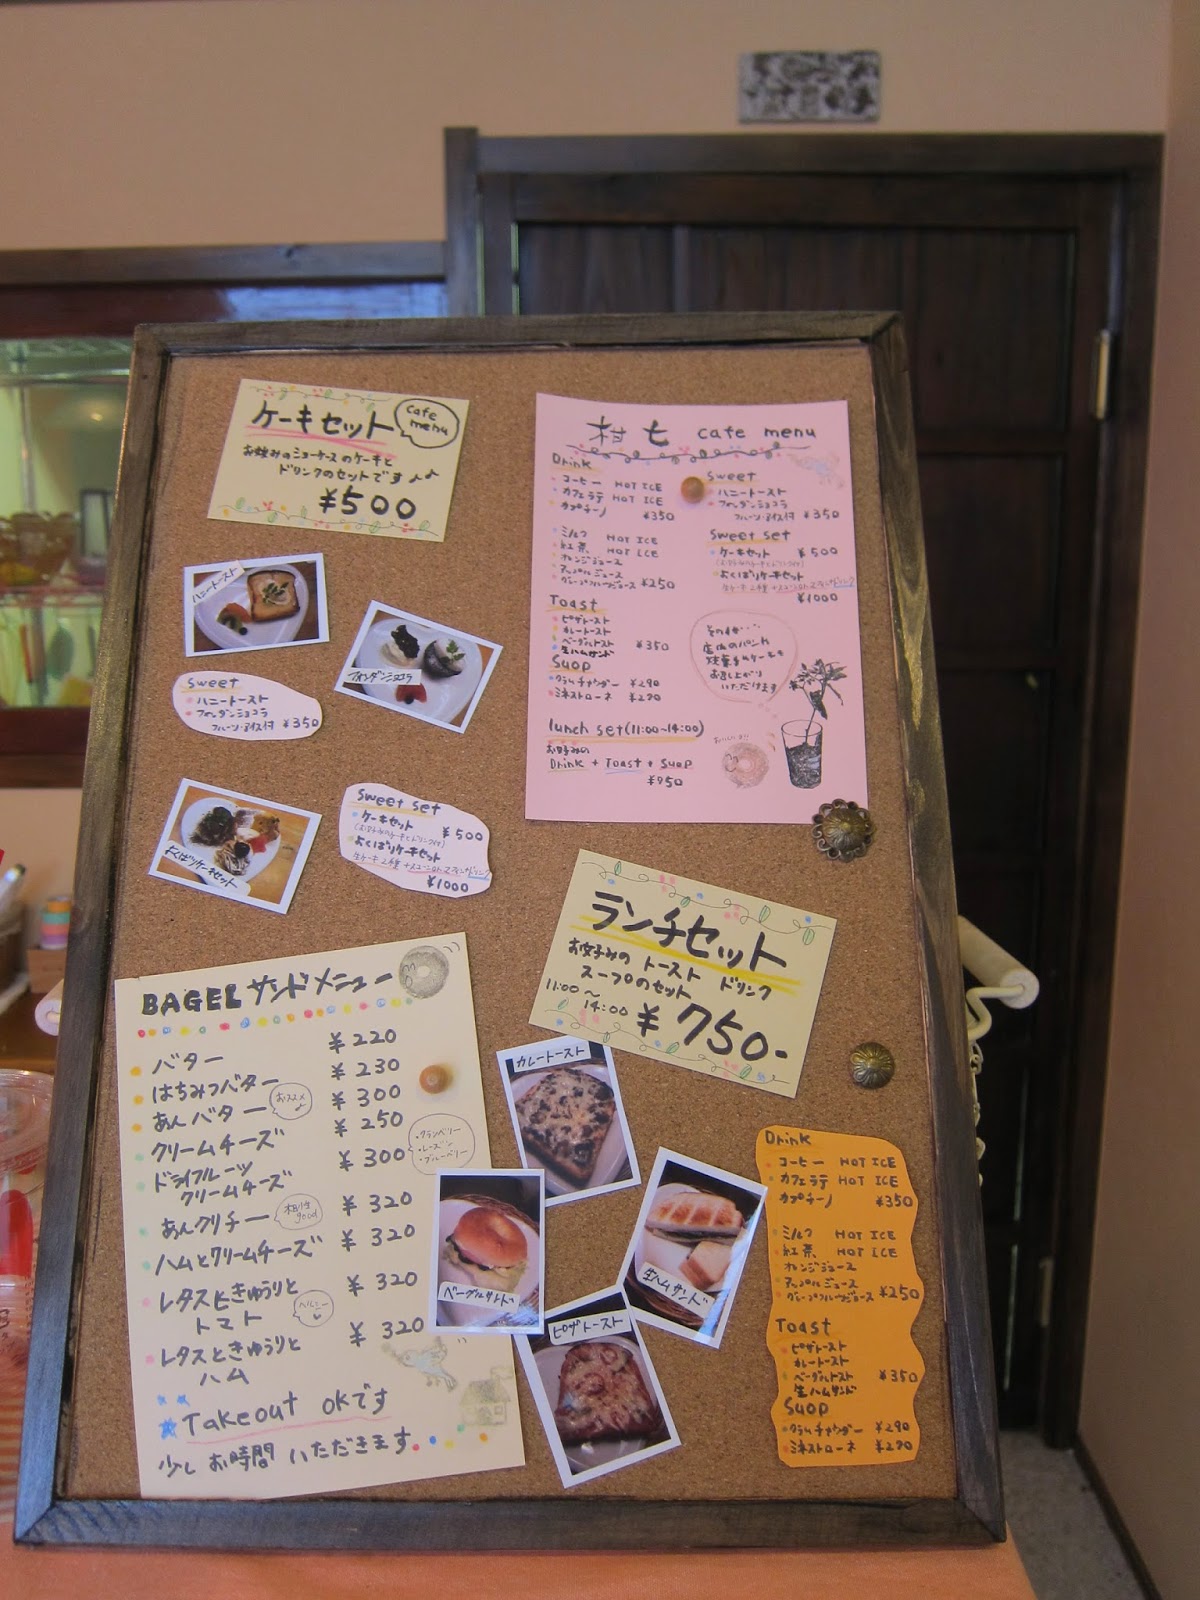 ケーキセット
cafe menu
お好みのショーケースのケーキと
ドリンクのセットです♪♪
¥500
ハニートースト
フォンダンショコラ
sweet
ハニートースト
フォンダンショコラ
フルーツ・アイス付 ¥350
よくばりケーキセット
sweet set
ケーキセット ¥500
(お好みのケーキとドリンク付)
よくばりケーキセット
¥1000
村七 cafe menu
Drink
コーヒー HOT ICE
カフェラテ HOT ICE
カプチーノ ¥350
ミルク HOT ICE
紅茶 HOT ICE
オレンジジュース
アップルジュース
グレープフルーツジュース ¥250
Toast
ピザトースト
カレートースト
ベーグルトースト ¥350
生ハムサンド
Suop
クラムチャウダー ¥290
ミネストローネ ¥270
lunch set(11:00~14:00)
お好みの
Drink + Toast + Suop
¥750
sweet
ハニートースト
フォンダンショコラ
フルーツ・アイス付 ¥350
Sweet set
ケーキセット ¥500
よくばりケーキセット
¥1000
その他・・・
店内のパンや
焼菓子やケーキも
お召し上がり
いただけます
ランチセット
お好みの トースト ドリンク
スープのセット
11:00~
14:00 ¥750-
BAGEL サンドメニュー
バター ¥220
はちみつバター ¥230
あんバター ¥300
おススメ♪
クリームチーズ ¥250
ドライフルーツ
クリームチーズ ¥300
・クランベリー
・レーズン
・ブルーベリー
あんクリチー ¥320
相性good
ハムとクリームチーズ ¥320
レタスときゅうりと
トマト ¥320
ヘルシー
レタスときゅうりと
ハム ¥320
Takeout OKです
少しお時間 いただきます
カレートースト
ベーグルサンド
生ハムサンド
ピザトースト
Drink
コーヒー HOT ICE
カフェラテ HOT ICE
カプチーノ ¥350
ミルク HOT ICE
紅茶 HOT ICE
オレンジジュース
アップルジュース
グレープフルーツジュース ¥250
Toast
ピザトースト
カレートースト
ベーグルトースト ¥350
生ハムサンド
Suop
クラムチャウダー ¥290
ミネストローネ ¥270